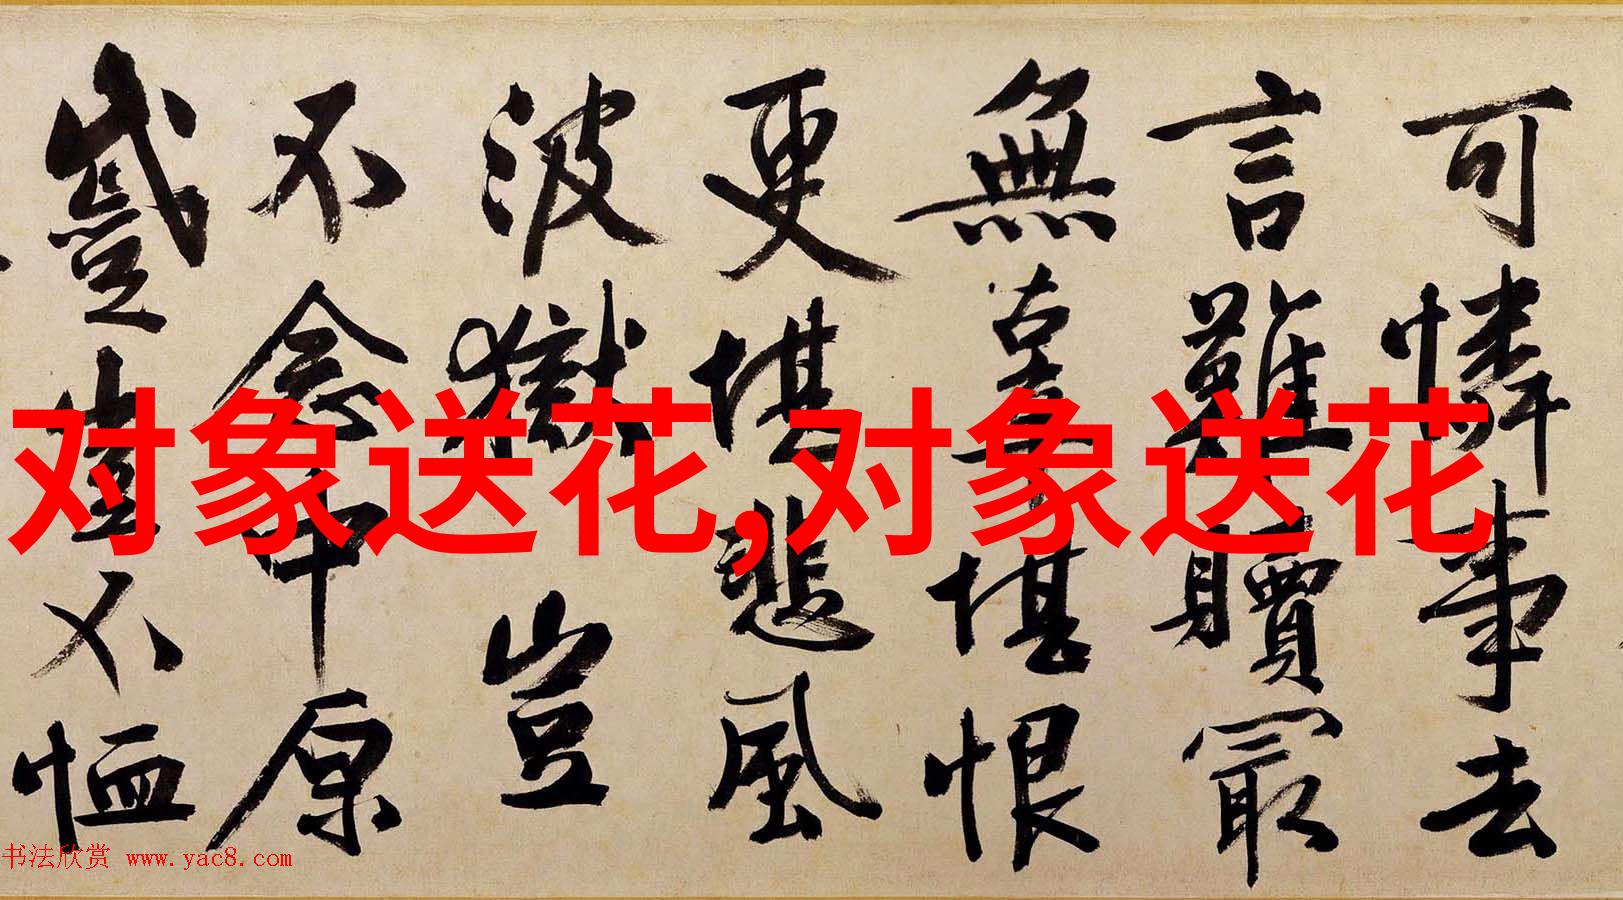 可憐事去
言難贖最
無辜堪恨
更堪悲風
波獄豈
不念中原
蹙豈不恤
对象送花,对象送花
书法欣赏 www.yac8.com